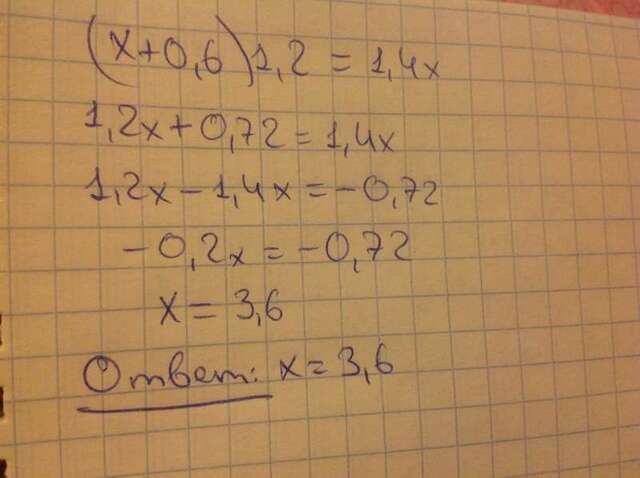 (x+0,6)1,2 = 1,4x
1,2x+0,72=1,4x
1,2x-1,4x=-0,72
-0,2x=-0,72
x=3,6
Ответ: x=3,6